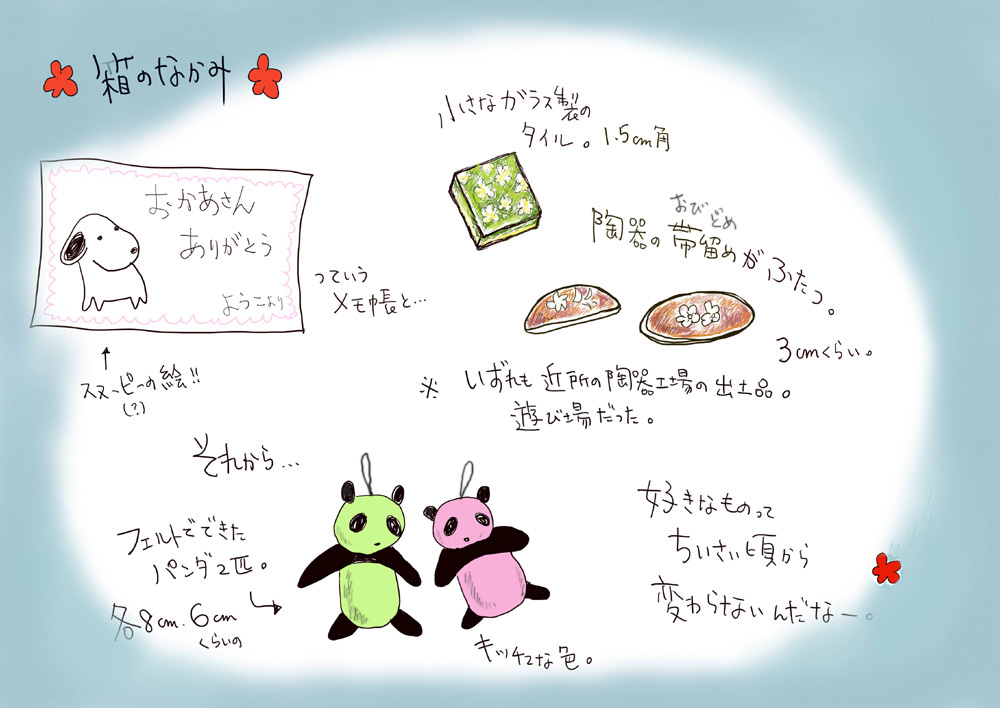 箱のなかみ
小さなガラス製の
タイル。1.5cm角
おかあさん
ありがとう
ようこより
っていう
メモ帳と…
スヌーピーの絵!!
(?)
おびどめ
陶器の帯留めがふたつ。
3cmくらい。
※ いずれも近所の陶器工場の出土品。
遊び場だった。
それから…
フェルトでできた
パンダ2匹。
各8cm.6cm
くらいの
キッチュな色。
好きなものって
ちいさい頃から
変わらないんだなー。